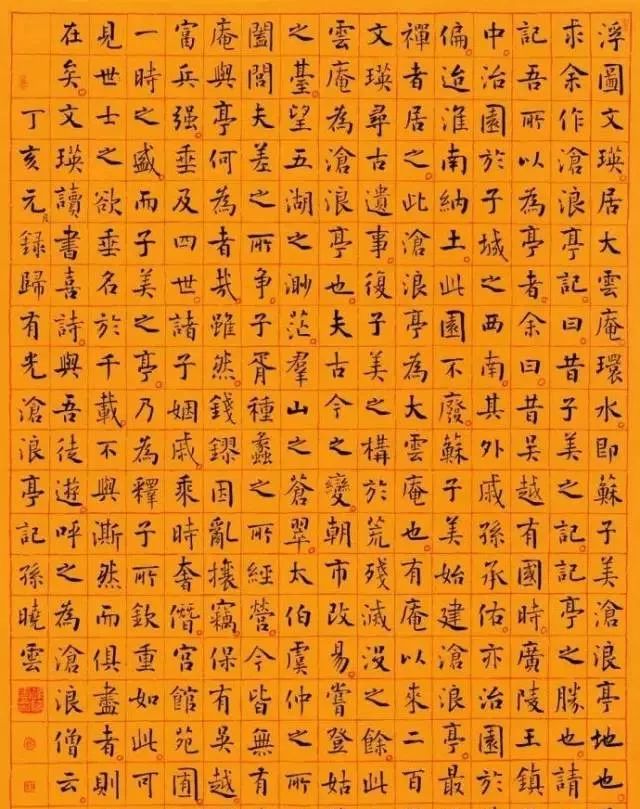 浮圖文瑛居大雲庵環水即蘇子美滄浪亭地也
求余作滄浪亭記曰昔子美之記記亭之勝也請
記吾所以為亭者余曰昔吳越有國時廣陵王鎮
中治園於子城之西南其外戚孫承佑亦治園於
偏迨淮南納土此園不廢蘇子美始建滄浪亭最
禪者居之此滄浪亭為大雲庵也有庵以來二百
文瑛尋古遺事復子美之構於荒殘滅沒之餘此
雲庵為滄浪亭也夫古今之變朝市改易嘗登姑
之臺望五湖之渺茫羣山之蒼翠太伯虞仲之所
闔閭夫差之所爭子胥種蠡之所經營今皆無有
庵與亭何為者哉雖然錢鏐因亂攘竊保有吳越
富兵强垂及四世諸子姻戚乘時奢僭宮館苑囿
一時之盛而子美之亭乃為釋子所欽重如此可
見世士之欲垂名於千載不與澌然而俱盡者則
在矣文瑛讀書喜詩與吾徒遊呼之為滄浪僧云
丁亥元月錄歸有光滄浪亭記孫曉雲